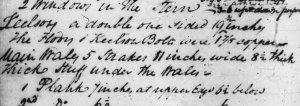 2 Windows in the Stern
Keelson a double one sided 19 Inches
The Floors & Keelson Bolts were 1⅜ copper
Main Wales 5 Strakes 11 inches wide 8½ thick
thick Stuff under the Wales
1 Plank 7 inches at upper Edge 6½ below